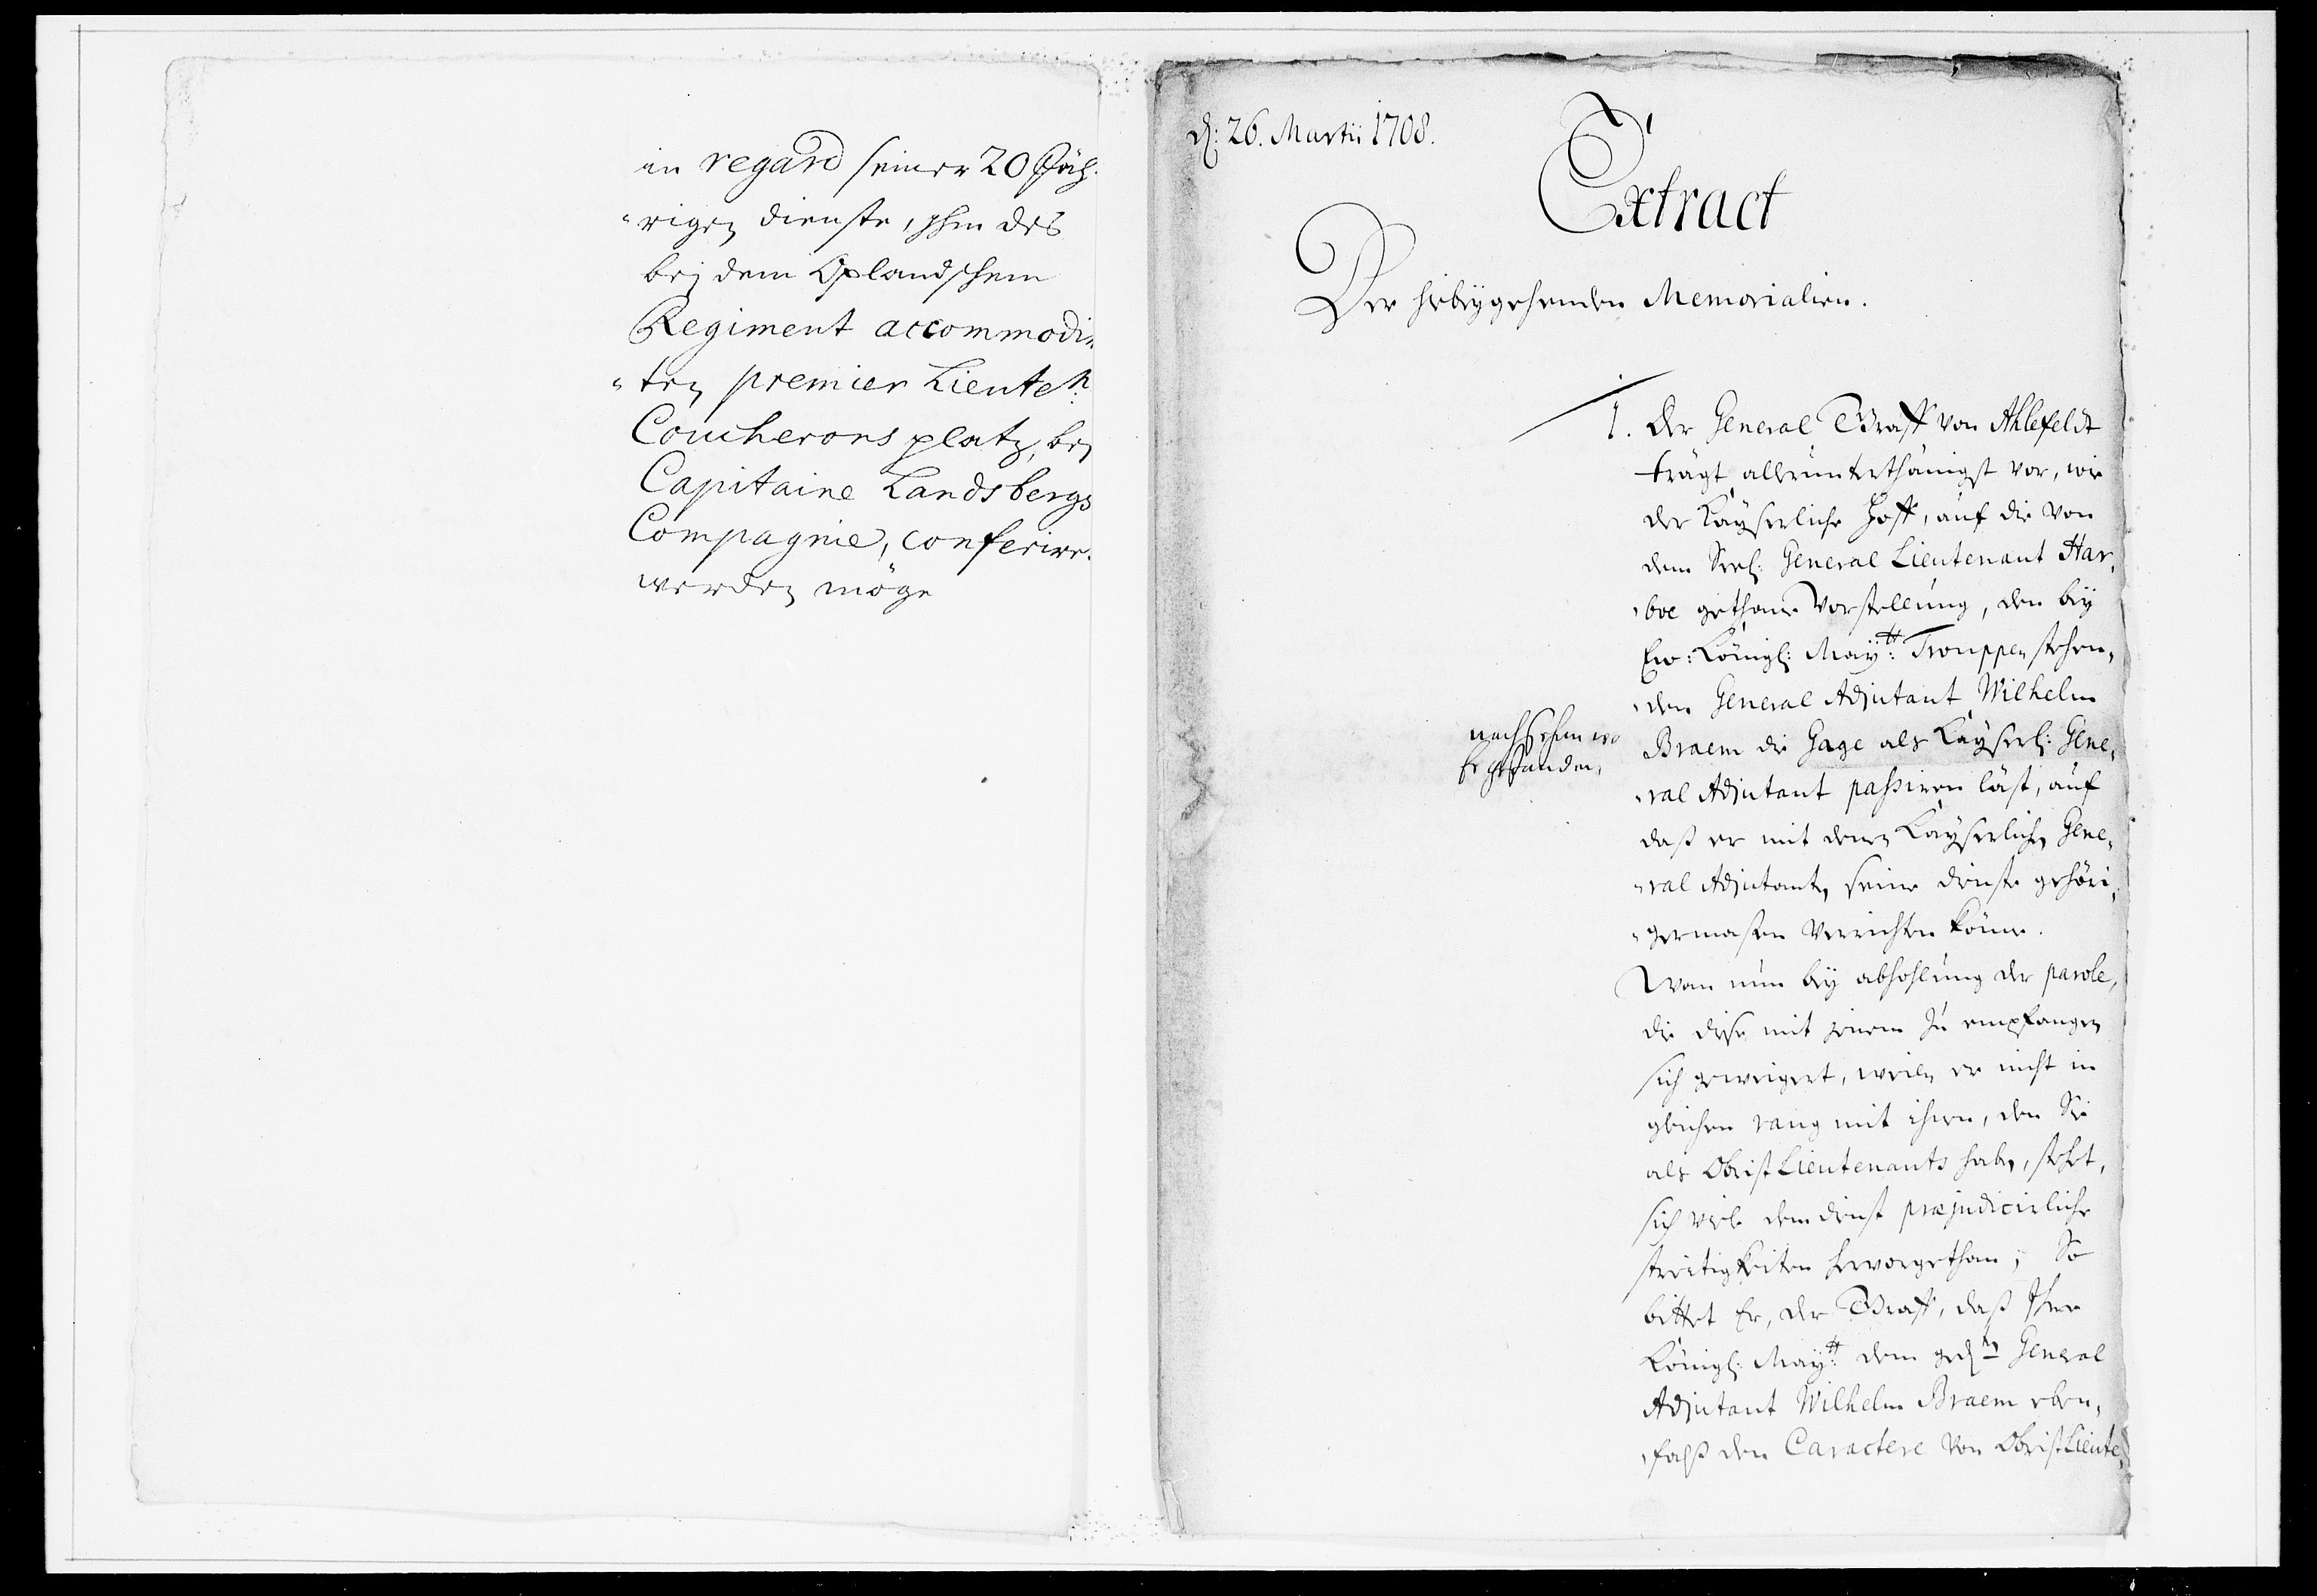 in regard seiner 20 Jäh-
"rigen dienste, ihm des
bej dem Oplandschem
Regiment accommodir-
"ten premier Lieuten:
Coucherons platz, bej
Capitaine Landsbergs
Compagnie, conferiret
werden möge
d: 26. Martii 1708.
Extract
Der hiebeygehenden Memorialien.
1. Der General Graff von Ahlefeldt
trägt allerunterthänigst vor, wie
der Kayserliche Hoff, auf die von
dem Seel: General Lieutenant Har,
,boe gethane Vorstellung, den bey
Ew: Königl: Maytt: Trouppen stehen,
,den General Adjutant Wilhelm
Braem die Gage als Kayserl: Gene,
,ral Adjutant passiren läst, auf
daß er mit denen Kayserlichen Gene,
,ral Adjutanten, seine dienste gehöri,
,germaßen verrichten könne.
nachsehen wo
Er gestanden,
Wan nun bey abhohlung der parole,
die diese mit jenem zu empfangen
sich geweigert, weilen er nicht in
gleichen rang mit ihnen, den Sie
als Obrist Lieutenants haben, stehet,
sich viele dem dienst præjudicirliche
streitigkeiten hervorgethan; So
bittet Er, der Graff, daß Ihre
Königl: Maytt: dem gedn General
Adjutant Wilhelm Braem eben,
,falß den Caractere von Obrist Lieute,